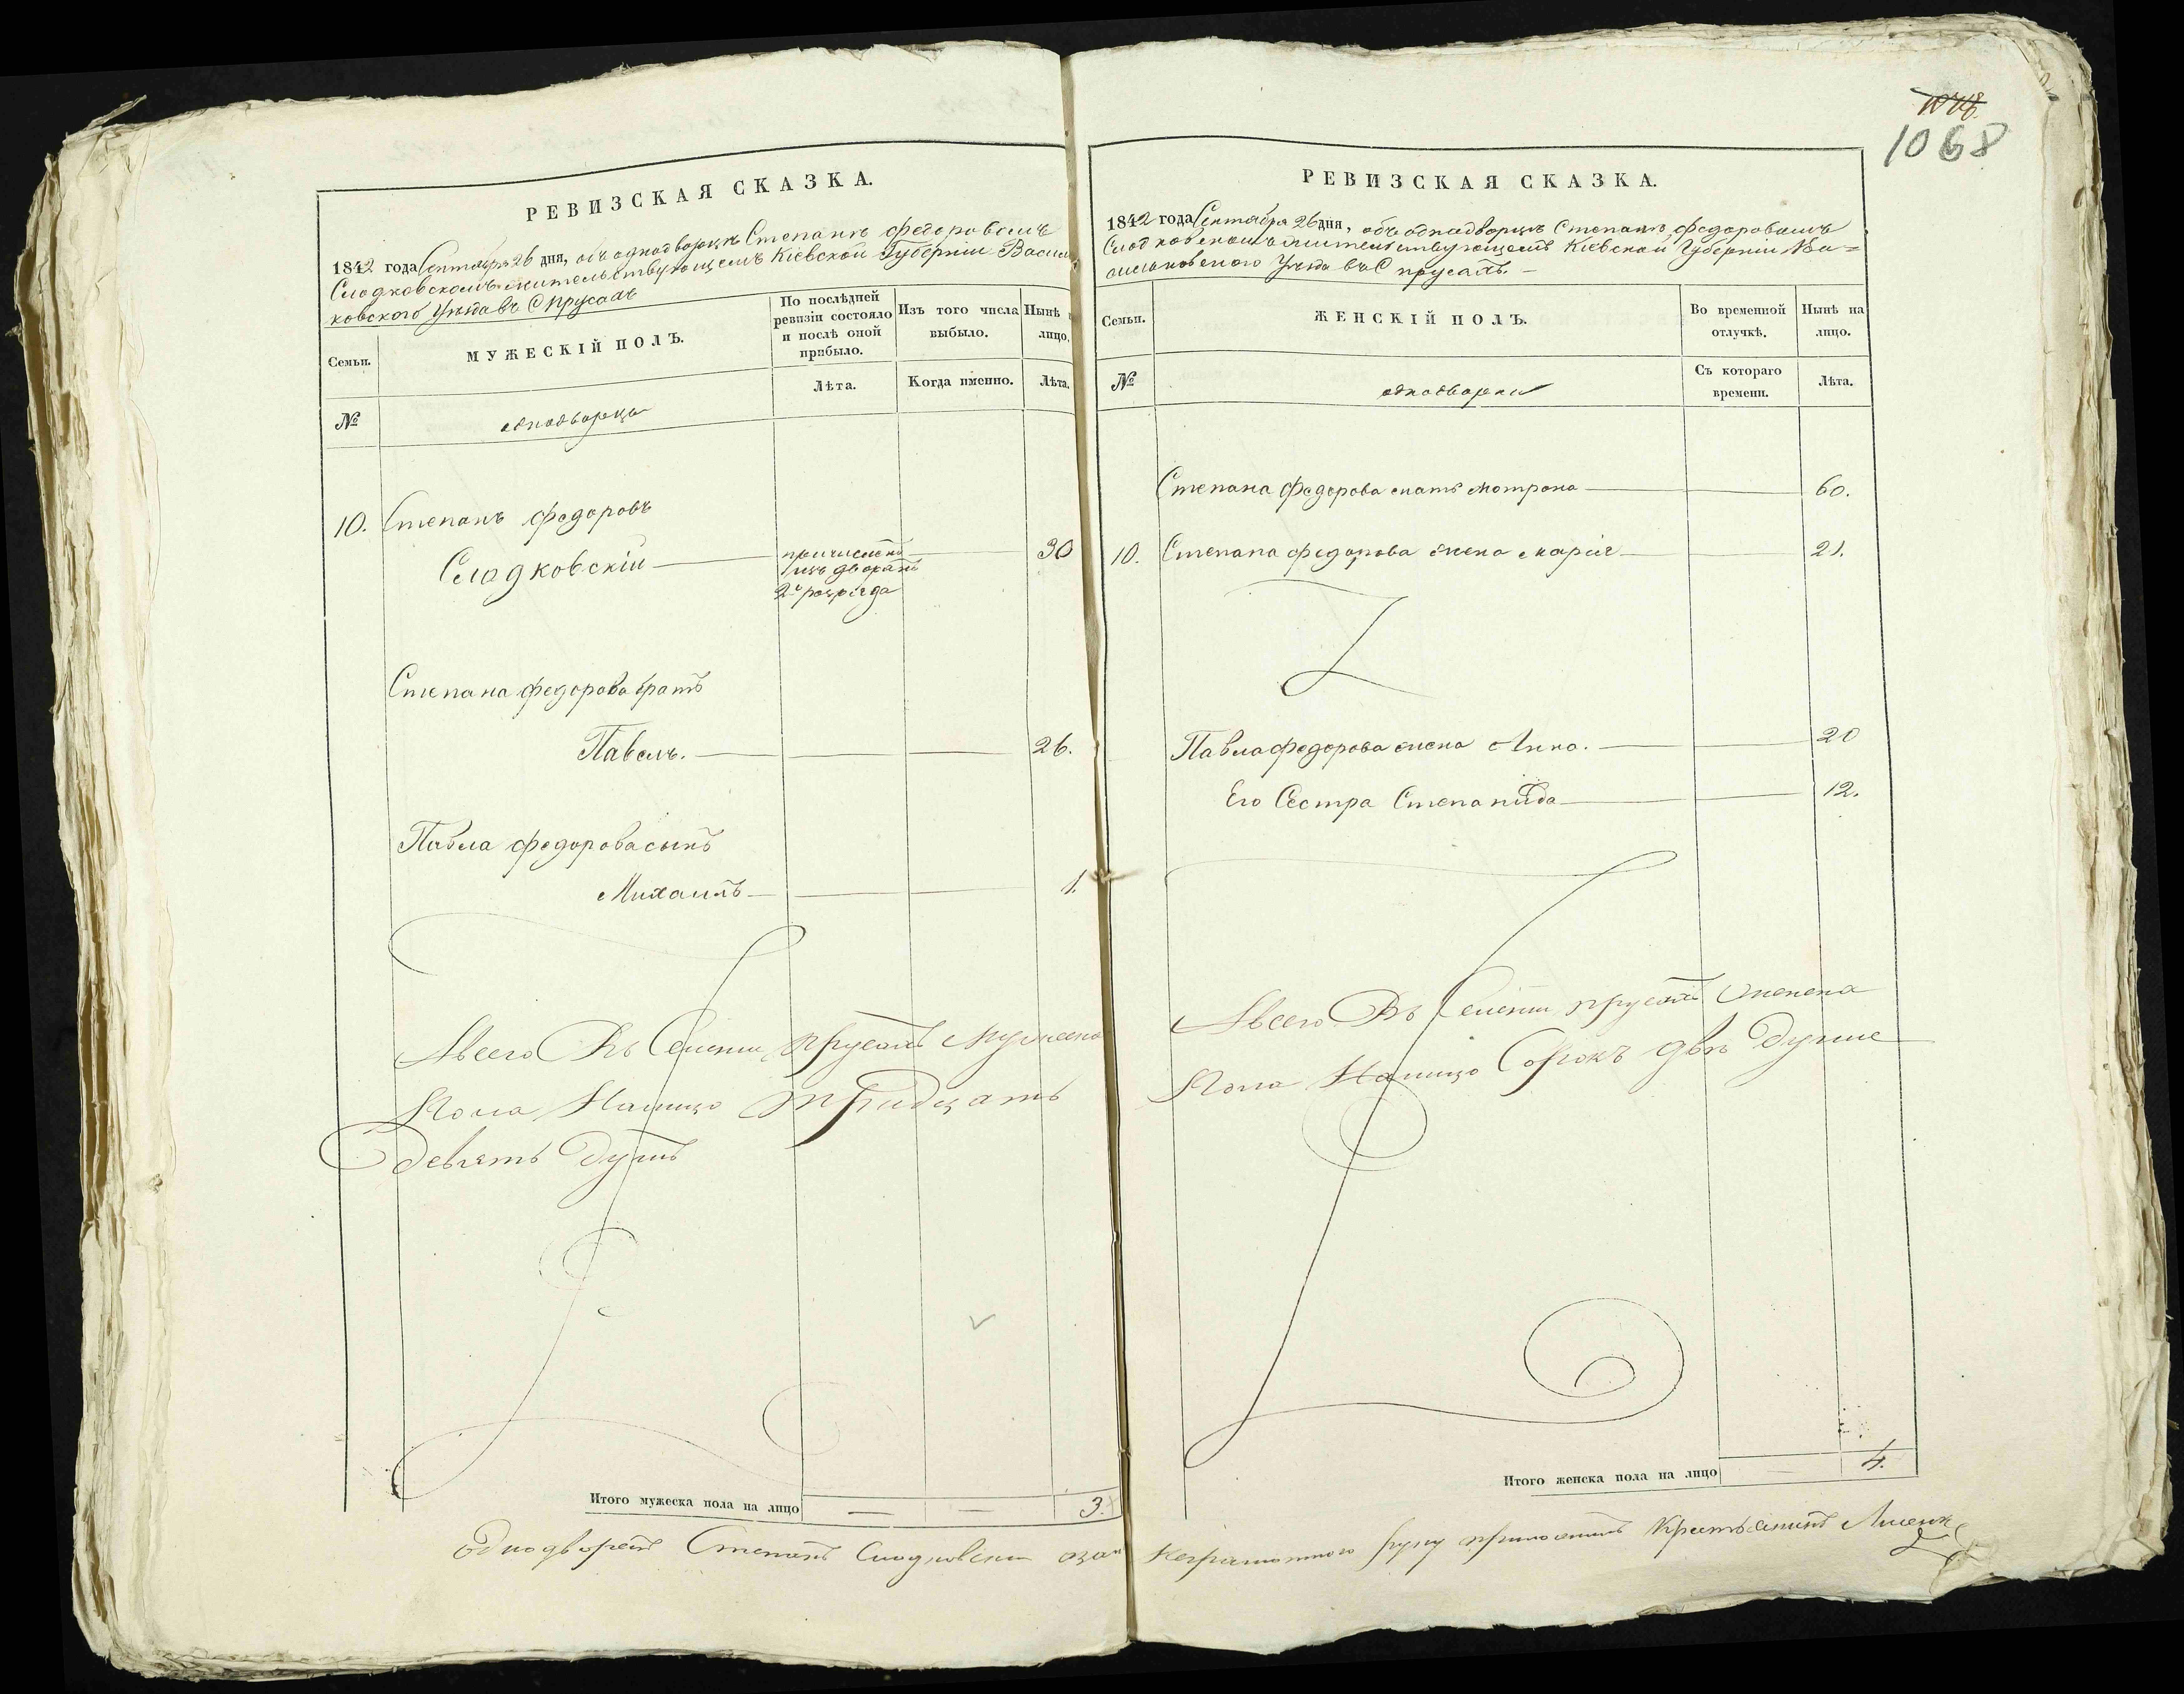 РЕВИЗСКАЯ СКАЗКА.
1842 года Сентября 26 дня, объ однодворцѣ Степанѣ Федоровомъ
Сладковскомъ жительствующемъ Кіевской Губерніи Васил
ковского Уѣзда въ С прусахъ
Семьи.
МУЖЕСКІЙ ПОЛЪ.
По послѣдней
ревизіи состояло
и послѣ оной
прибыло.
Изъ того числа
выбыло.
Нынѣ
лицо,
Лѣта.
Когда именно.
Лѣта,
№
однодворцы
10. Степанъ федоровъ
Сладковскій
причисленъ
изъ дворянъ
2го розряда
30
Степана федорова братъ
Павелъ.
26.
Павла федорова сынъ
Михаилъ
1.
Авсего Въ Селеніи прусахъ Мужеска
Пола Налицо тридцать
девять душъ
Итого мужеска пола на лицо
3.
Однодворецъ Степанъ Сладковскій азаи
1068
РЕВИЗСКАЯ СКАЗКА.
1842 года Сентября 26 дня, объ однодворцѣ Степанѣ федоровомъ
Сладковскомъ жительствующемъ Кіевской Губерніи Ва=
сильковского Уѣзда въ С прусахъ. –
Семьи.
ЖЕНСКІЙ ПОЛЪ.
Во временной
отлучкѣ.
Нынѣ на
лицо.
№
однодворки
Съ котораго
времени.
Лѣта.
Степана федорова мать мотрона
60.
10. Степана федорова жена марія
21.
Павла федорова жена Анна.
20
Его Сестра Степанида
12.
Авсего Въ Селеніи прусахъ женска
Пола Налицо Сорокъ двѣ душы
Итого женска пола на лицо
4.
неграмотного руку приложилъ Крестьянинъ